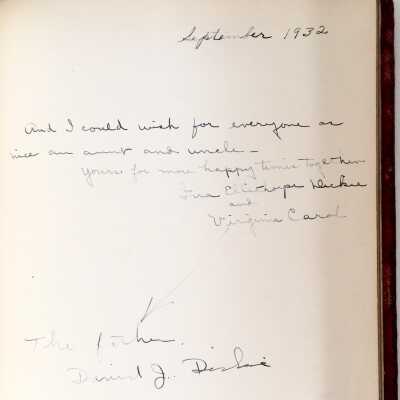 September 1932
And I could wish for everyone as
nice an aunt and uncle –
Yours for more happy times together
Ellithorpe Dickie
and
Virginia Carol
The father.
David J. Dickie